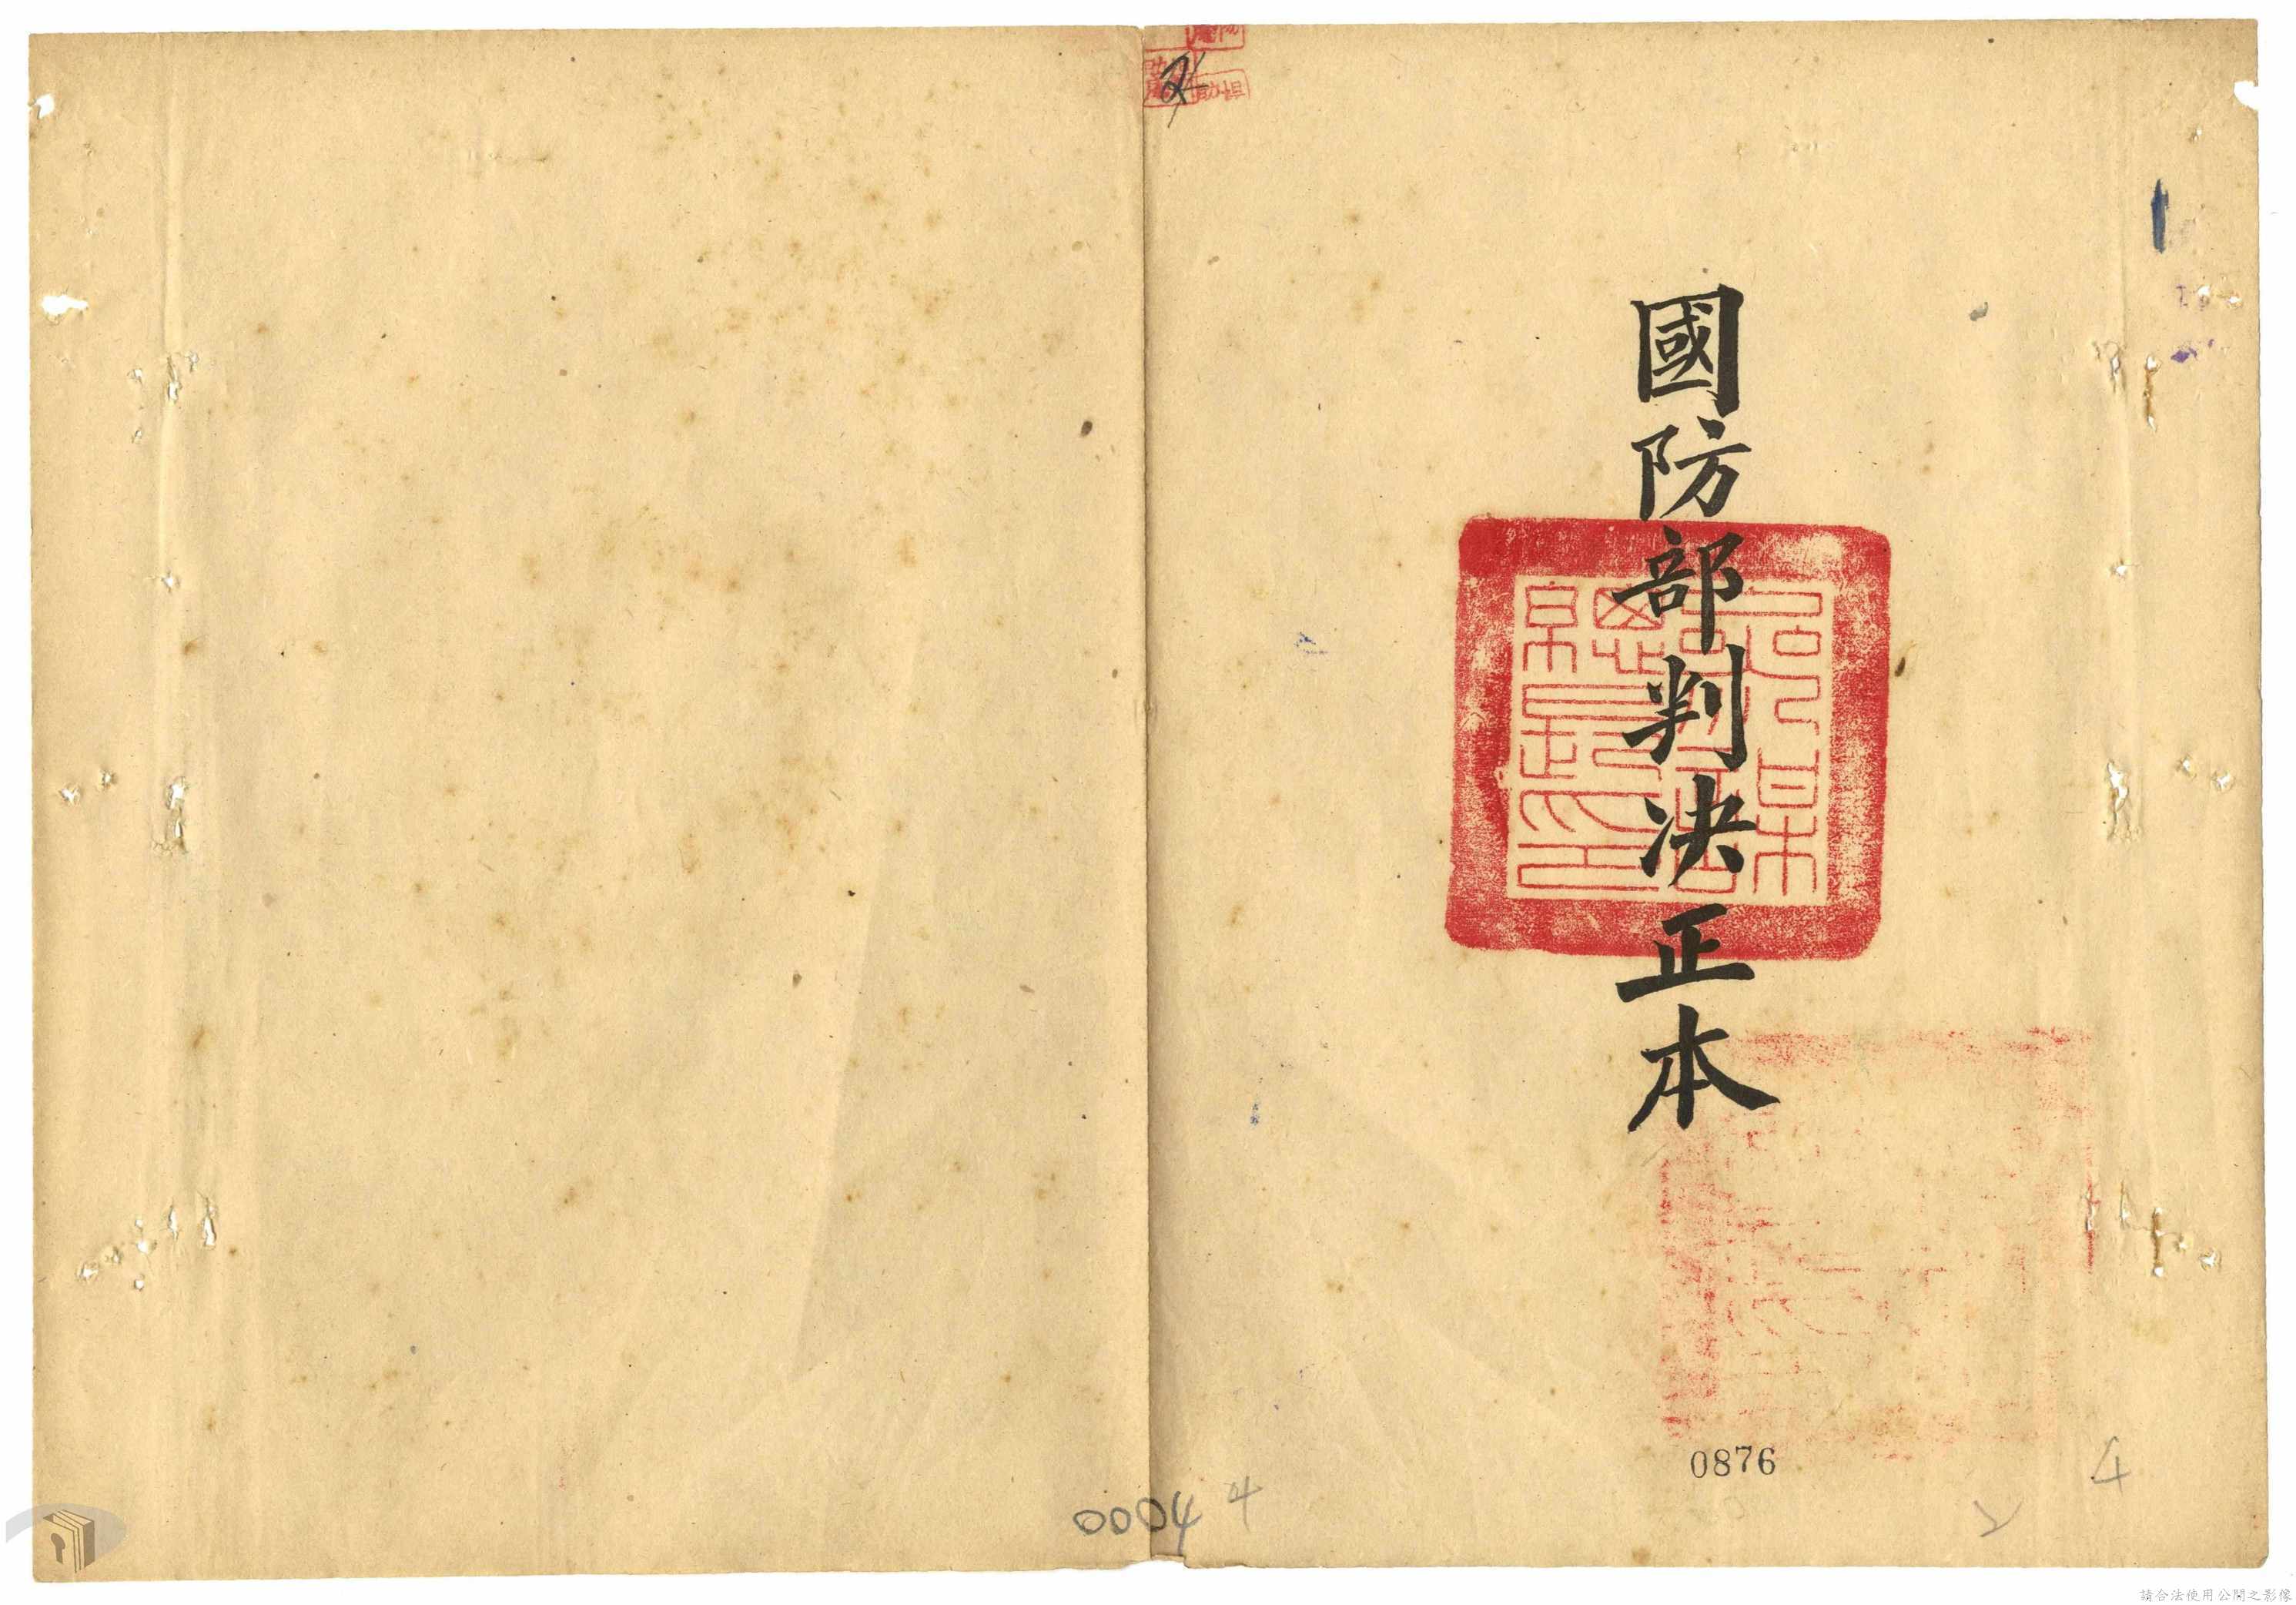 國防部判決正本
0876
0004 4
4
請合法使用公開之影像